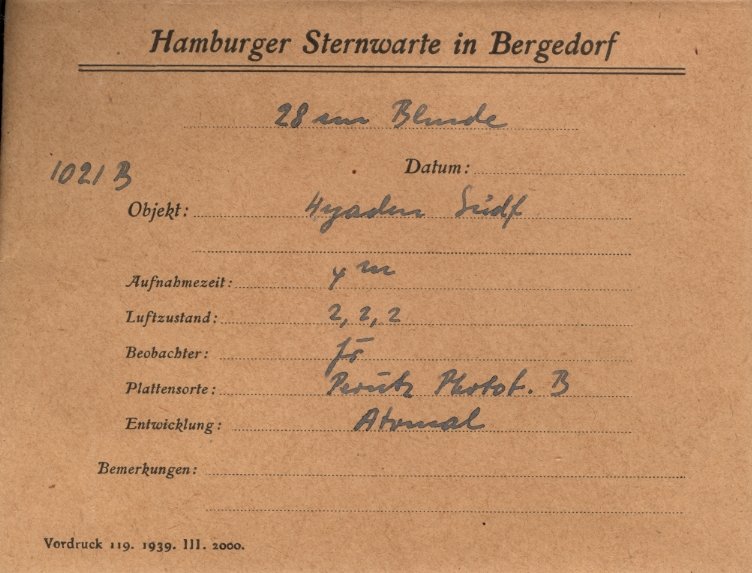 Hamburger Sternwarte in Bergedorf
28 cm Blende
1021 B
Datum:
Objekt: Hyaden Südf
Aufnahmezeit: 4 m
Luftzustand: 2, 2, 2
Beobachter:
Plattensorte: Perutz Phototh. B
Entwicklung: Atomal
Bemerkungen:
Vordruck 119. 1939. III. 2000.